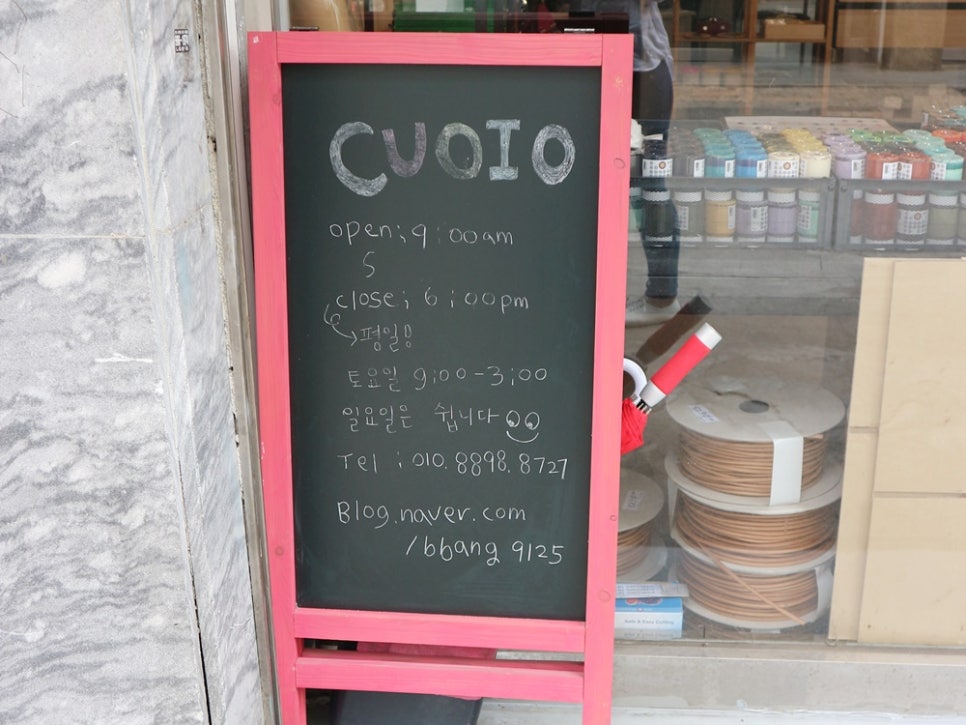 CUOIO
open; 9:00am
S
close; 6:00pm
평일!
토요일 9:00-3:00
일요일은 쉽니다
Tel : 010. 8898. 8727
Blog.naver.com
/bbang 9125